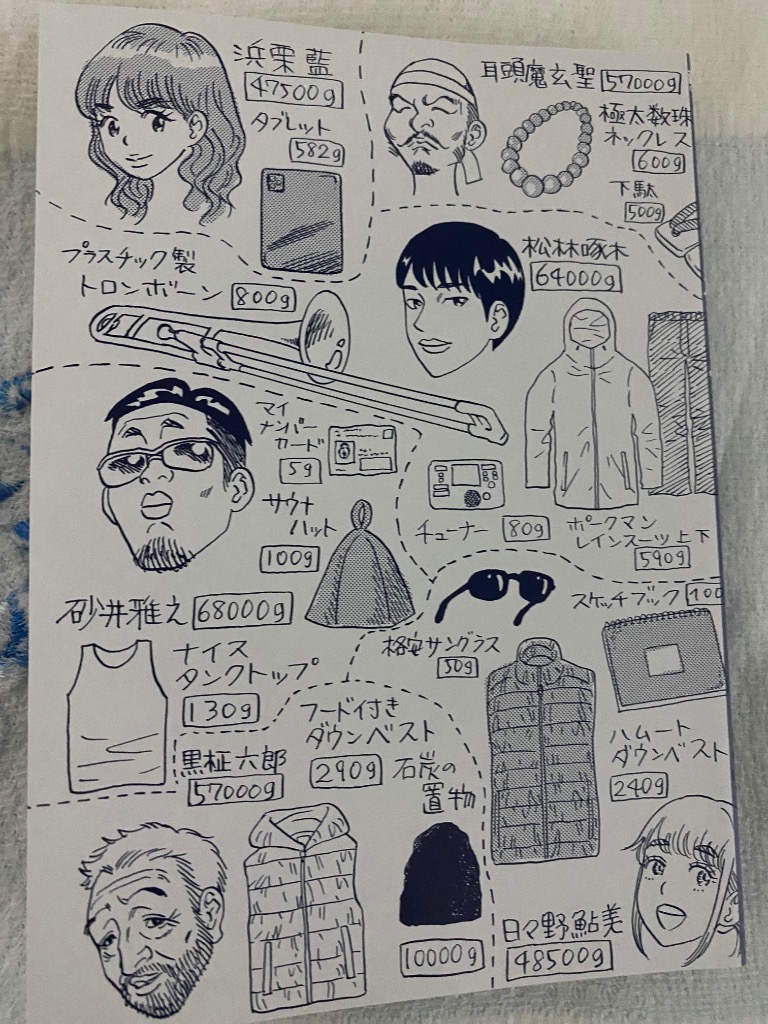 浜栗藍
47500g
タブレット
582g
耳頭魔玄聖 57000g
極太数珠
ネックレス
600g
下駄
500g
プラスチック製
トロンボーン 800g
松林啄木
64000g
チューナー 80g
ポークマン
レインスーツ上下
590g
マイ
ナンバー
カード
5g
サウナ
ハット
100g
砂井雅之 68000g
ナイス
タンクトップ
130g
格安サングラス
50g
スケッチブック
ハムート
ダウンベスト
240g
日々野鮎美
48500g
黒柾六郎
57000g
フード付き
ダウンベスト
290g
石炭の
置物
10000g